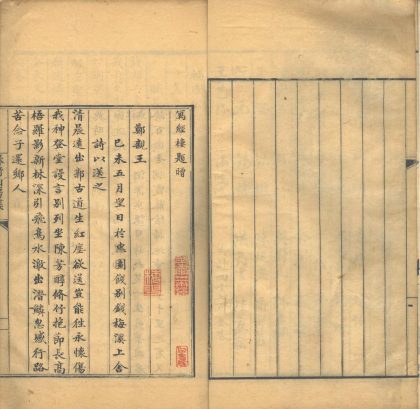 寫經樓題贈
鄭親王
己未五月望日於惠園餞別錢梅溪上舍
詩以送之
清晨遠出郭古道生紅塵欲送豈能往永懷傷
我神登堂設言別列坐陳芳醇脩竹抱節長高
梧羅影新林深引飛鳥水激出潛鱗忽域行路
苦念子還鄉人